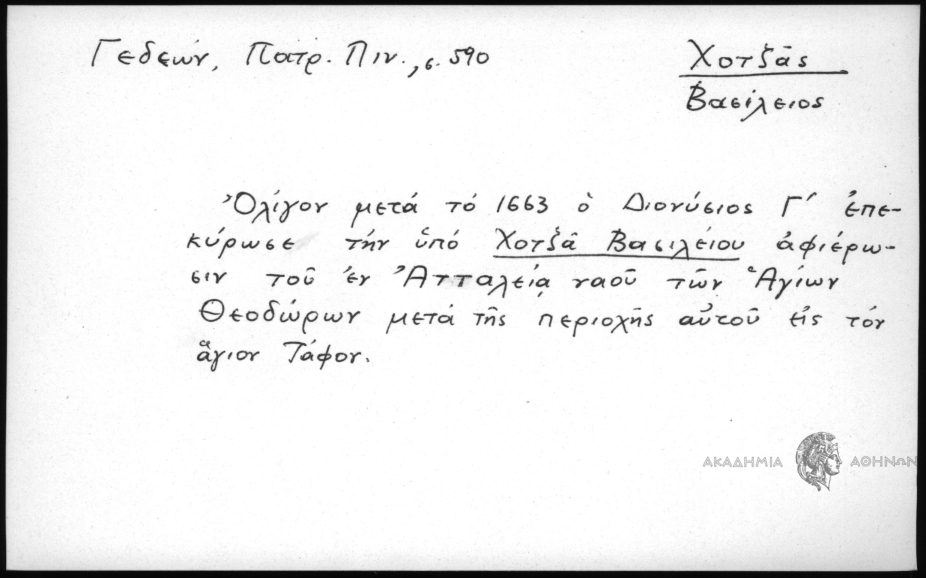 Γεδεών, Πατρ. Πιν., σ. 590
Χοτζᾶς
Βασίλειος
Ὀλίγον μετά τό 1663 ὁ Διονύσιος Γ΄ ἐπε-
κύρωσε τήν ὑπό Χοτζᾶ Βασιλείου ἀφιέρω-
σιν τοῦ ἐν Ἀτταλείᾳ ναοῦ τῶν Ἁγίων
Θεοδώρων μετά τῆς περιοχῆς αὐτοῦ εἰς τόν
ἅγιον Τάφον.
ΑΚΑΔΗΜΙΑ ΑΘΗΝΩΝ